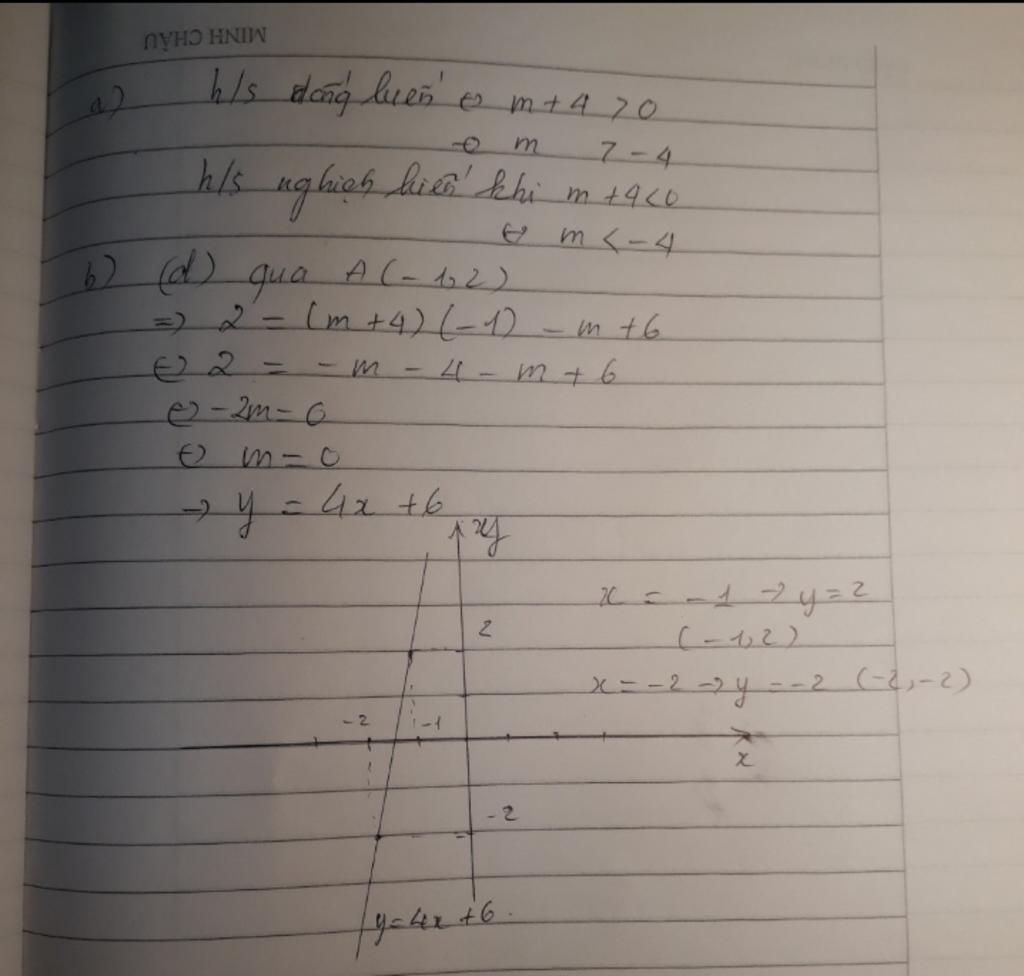 MINH CHÂU
a) h/s đồng biến ⇔ m + 4 > 0
⇔ m > -4
h/s nghịch biến khi m + 4 < 0
⇔ m < -4
b) (d) qua A (-1, 2)
=> 2 = (m + 4) (-1) - m + 6
⇔ 2 = - m - 4 - m + 6
⇔ -2m = 0
⇔ m = 0
→ y = 4x + 6
y
x = -1 → y = 2
2
(-1, 2)
x = -2 → y = -2 (-2, -2)
-2 -1
x
-2
y = 4x + 6.